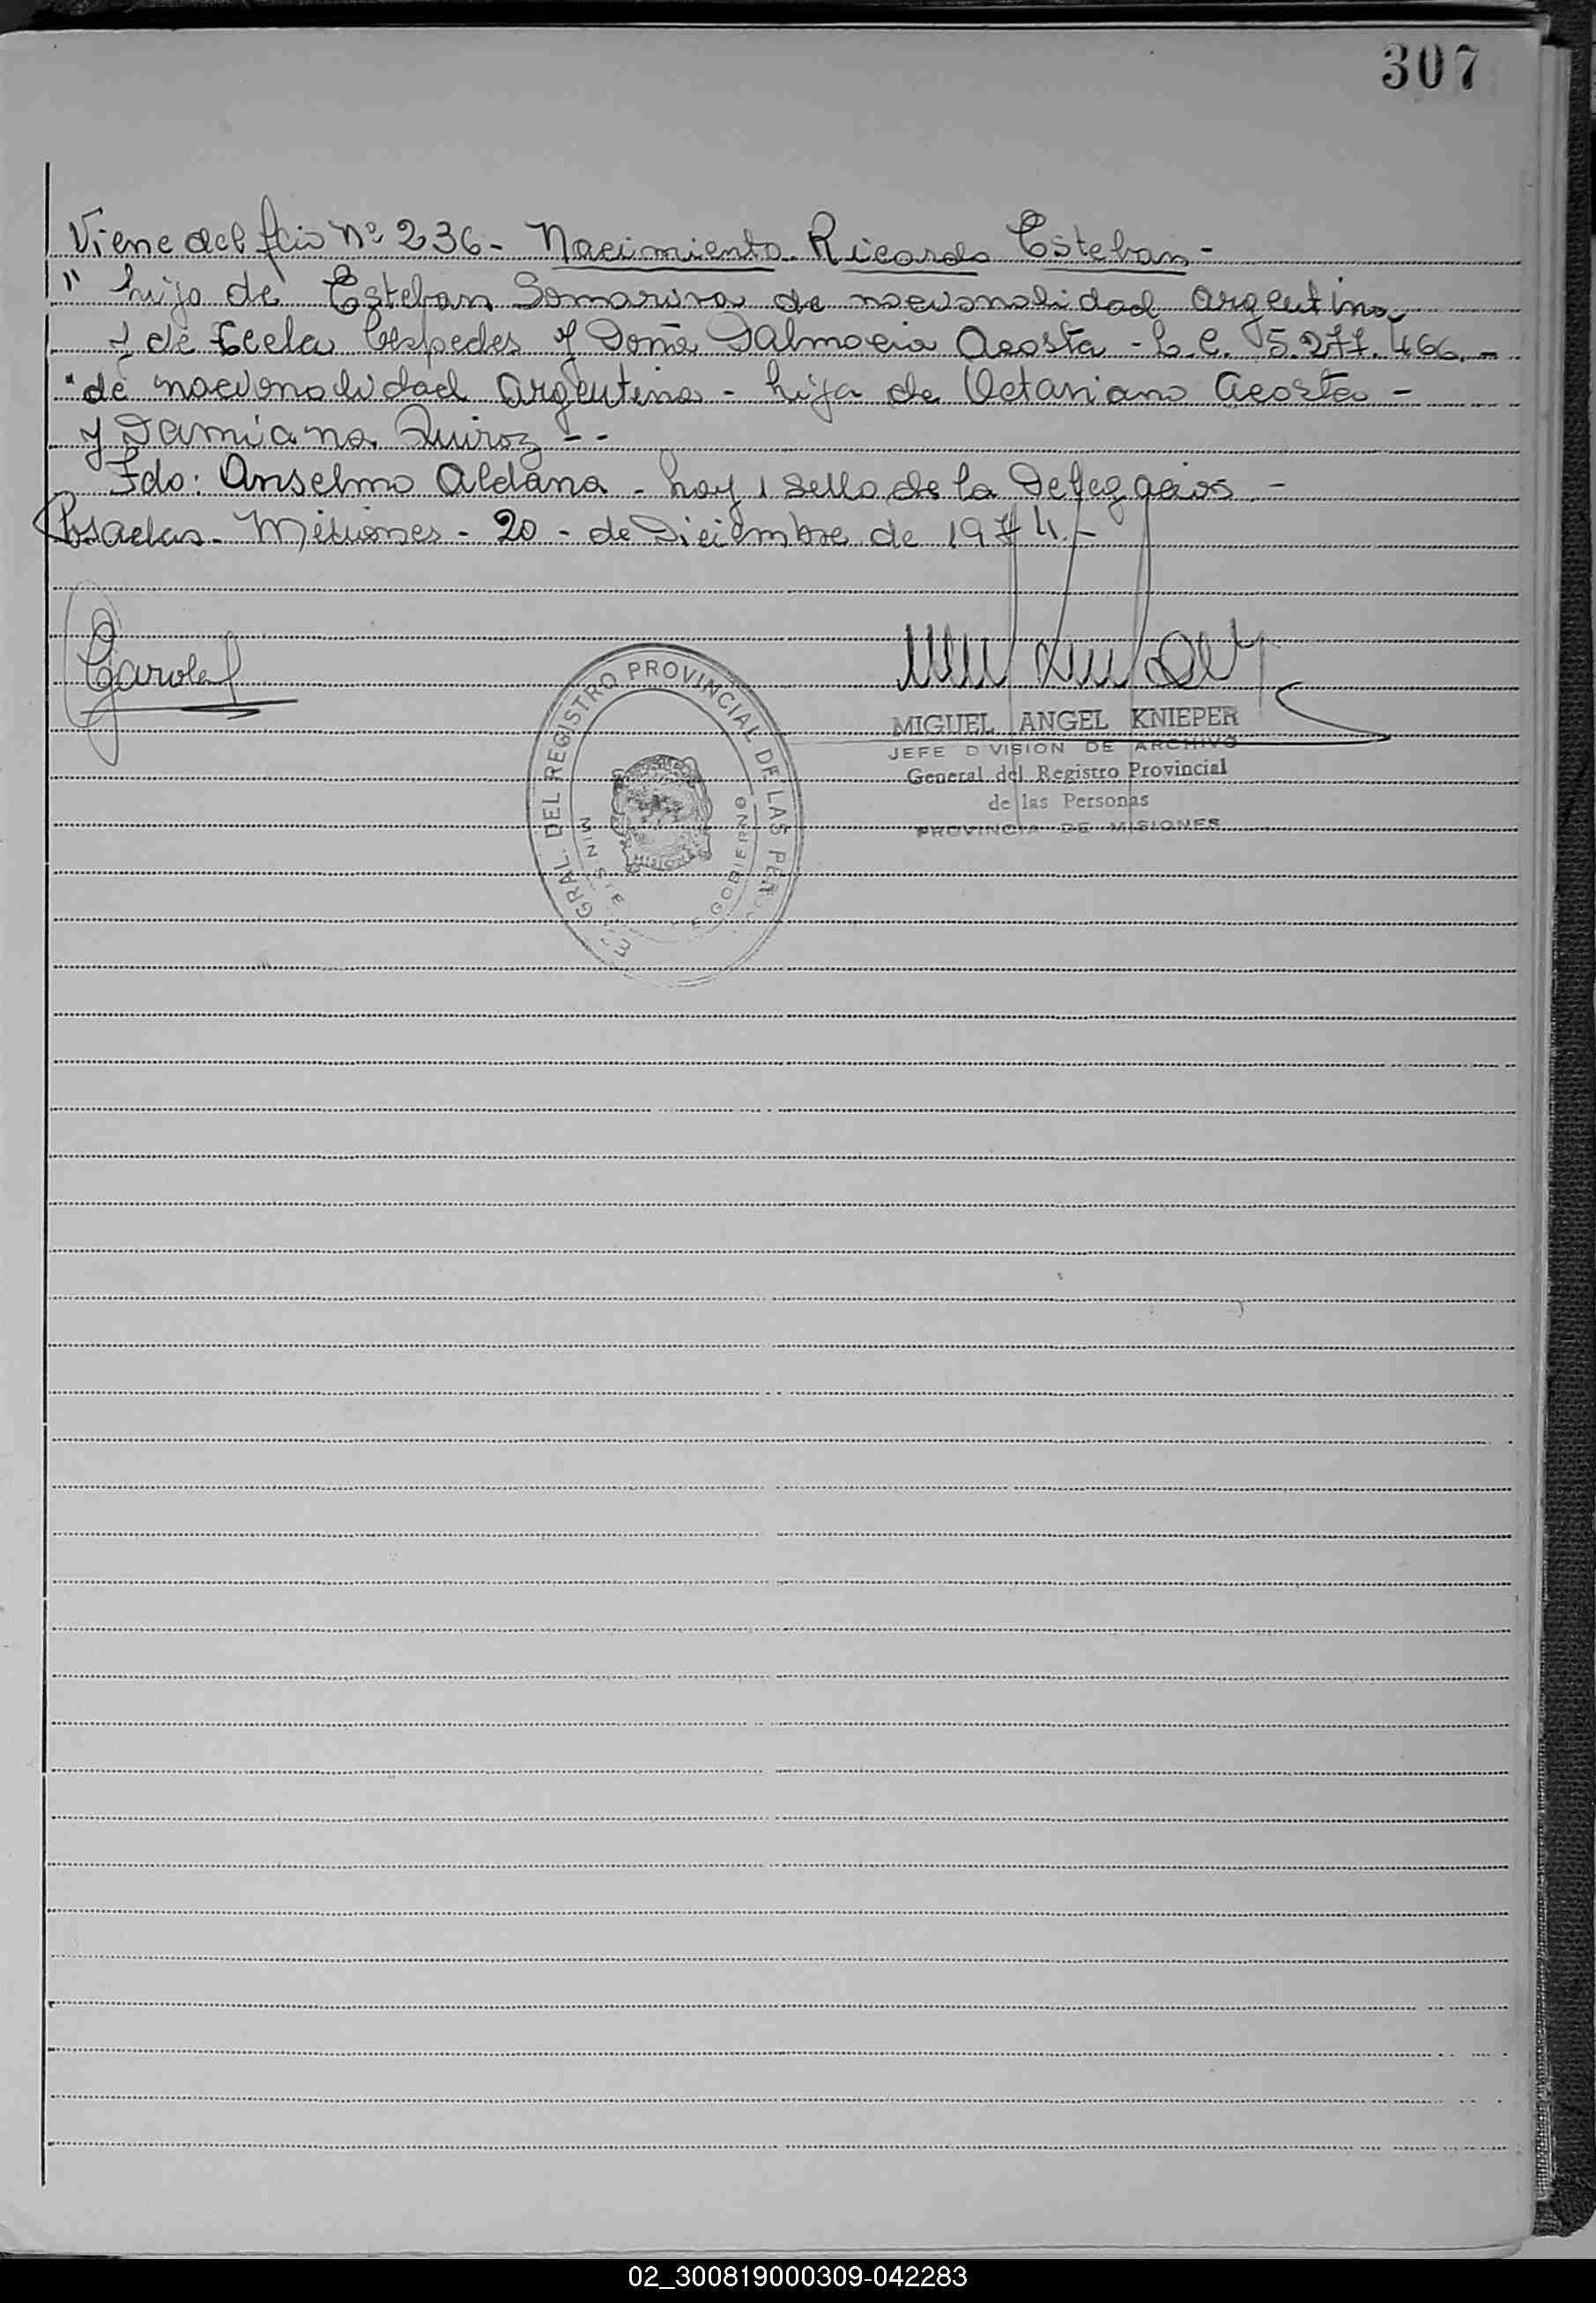 307
Viene del flio Nº 236 - Nacimiento Ricardo Esteban -
" hijo de Esteban Somariva de nacionalidad argentina
y de Tecla Cespedes y Doña Dalmacia Acosta - L.C. 5.277.466. -
" de nacionalidad Argentina - hija de Octaviano Acosta -
y Damiana Quiroz - -
Fdo: Anselmo Aldana - hay 1 sello de la Delegación -
Posadas - Misiones - 20 - de Diciembre de 1974 -
GRAL. DEL REGISTRO PROVINCIAL DE LAS PER
MINIS E GOBIERNO
MIGUEL ANGEL KNIEPER
JEFE DIVISION DE ARCHIVO
General del Registro Provincial
de las Personas
PROVINCIA DE MISIONES
02_300819000309-042283